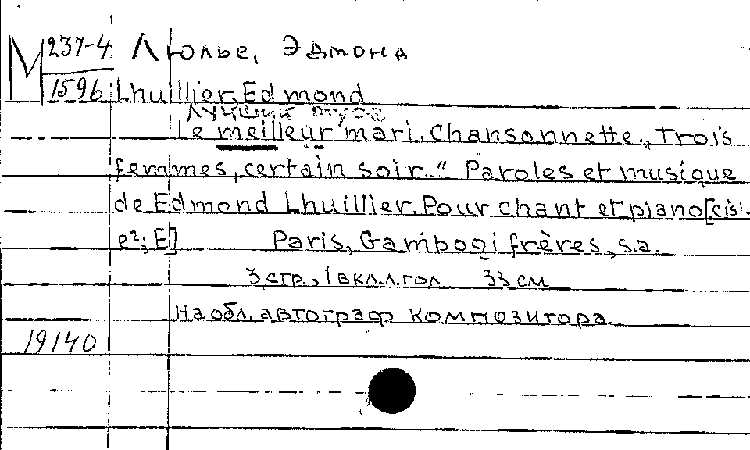 М 237-4 Люлье, Эдмонд
1596 Lhuillier, Edmond
Лучший муж
Le meilleur mari. Chansonnette. „Trois
femmes, certain soir..." Paroles et musique
de Edmond Lhuillier. Pour chant et piano [cis¹-
e²; E] Paris, Gambogi frères, s.a.
3 стр., 1 вкл. л. гол. 33 см
На обл. автограф композитора
19140